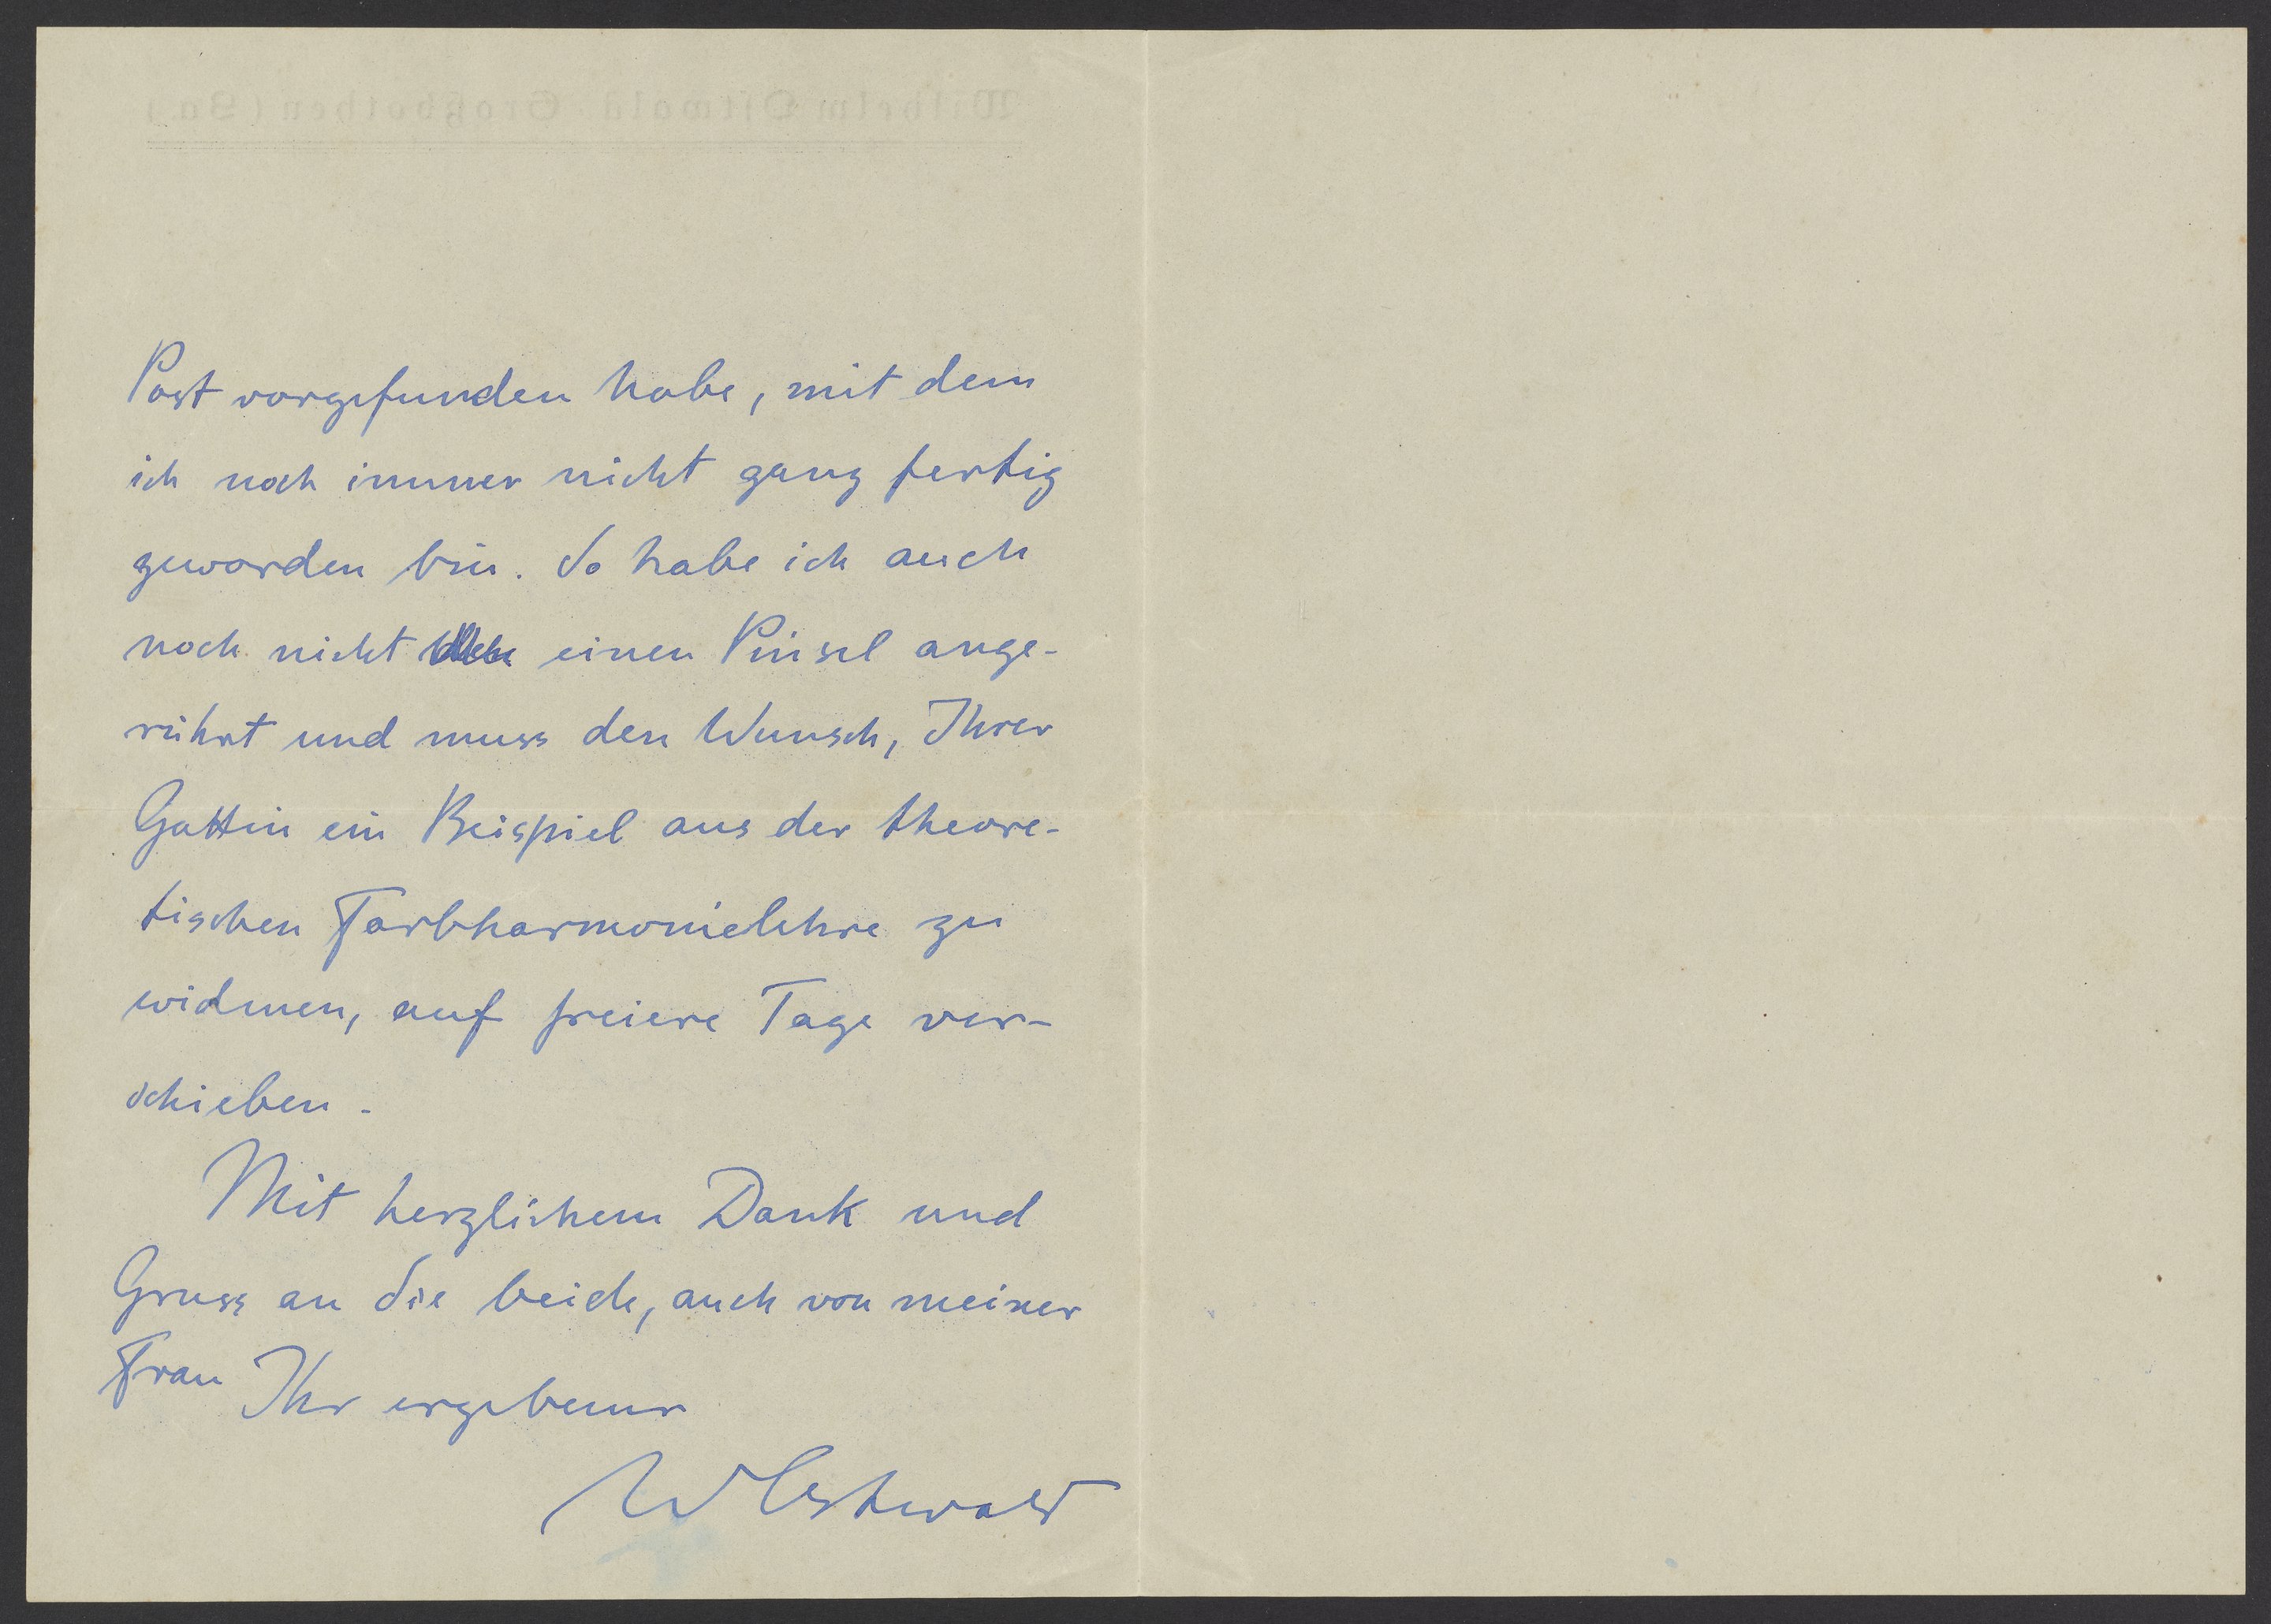 Wilhelm Ostwald · Großbothen (Sa.)
Post vorgefunden habe, mit dem
ich noch immer nicht ganz fertig
geworden bin. So habe ich auch
noch nicht einen Pinsel ange-
rührt und muss den Wunsch, Ihrer
Gattin ein Beispiel aus der theore-
tischen Farbharmonielehre zu
widmen, auf freiere Tage ver-
schieben.
Mit herzlichem Dank und
Gruss an Sie beide, auch von meiner
Frau Ihr ergebener
WOstwald